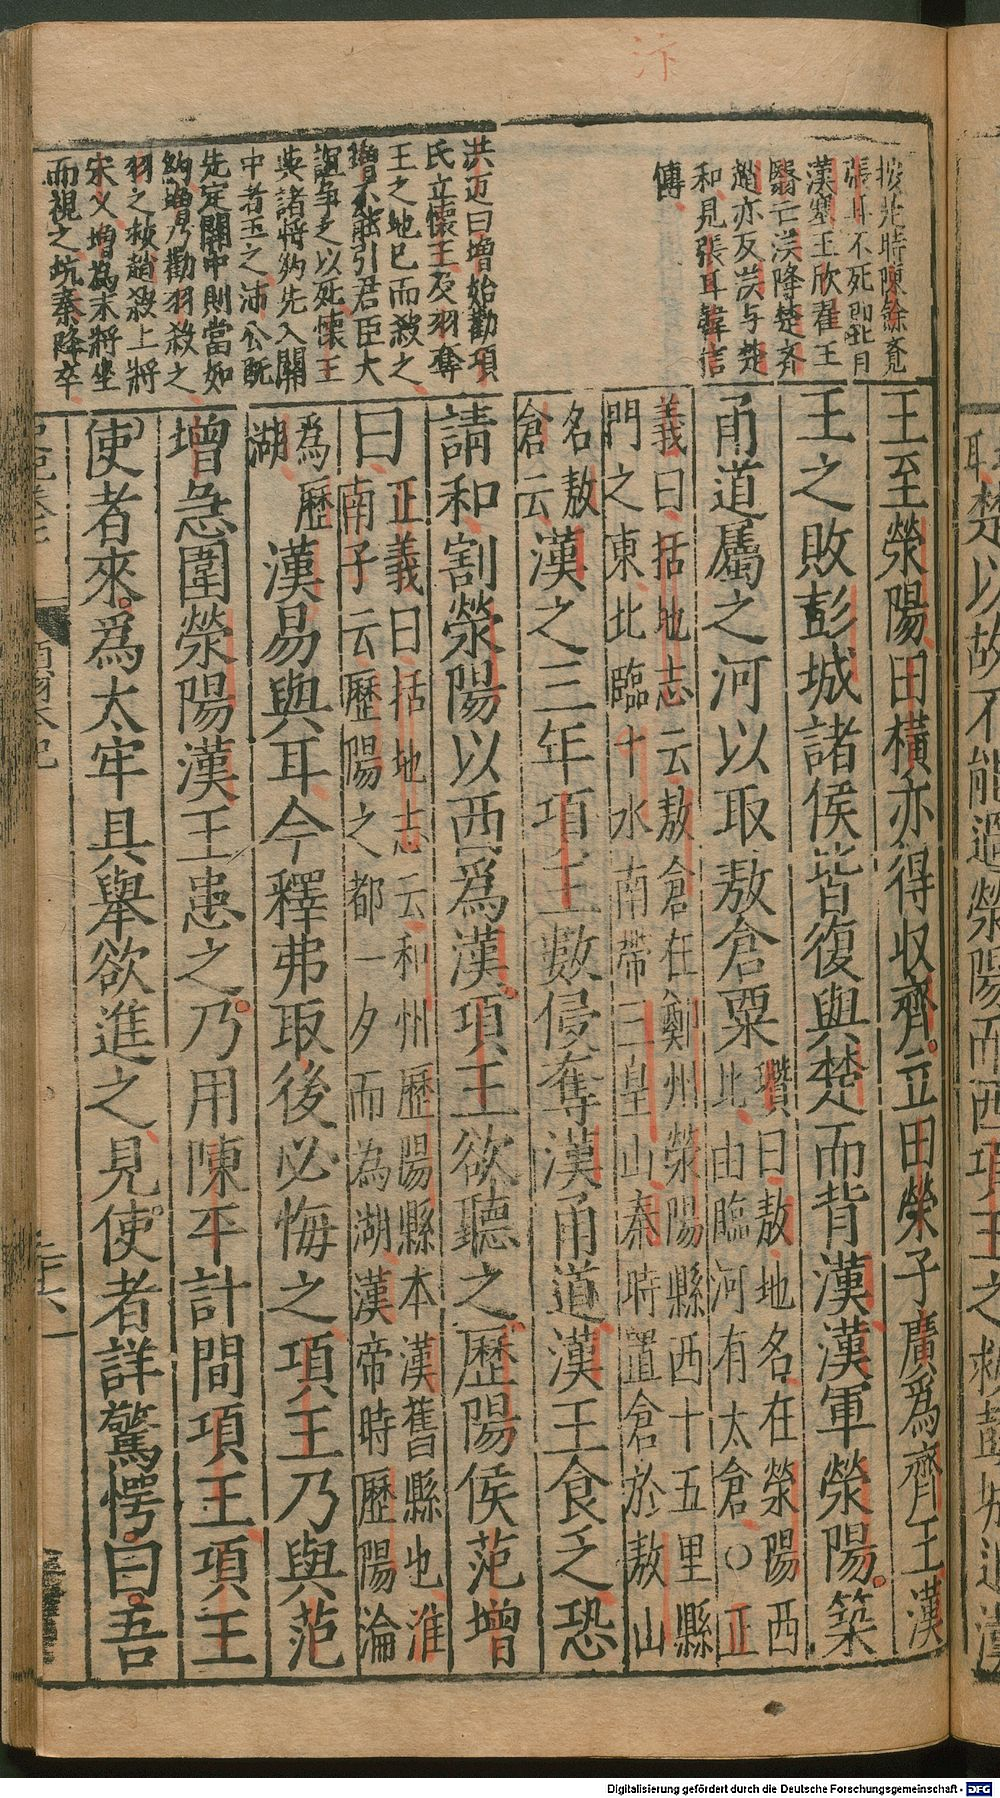 汴
按是時陳餘覔
張耳不死即此月
漢塞王欣翟王
翳亡漢降楚齊
趙亦反漢与楚
和見張耳韓信
傳
洪迈曰增始勸項
氏立懷王及羽奪
王之地已而殺之
增不能引君臣大
誼爭之以死懷王
與諸將約先入關
中者王之沛公既
先定關中則當如
約增乃勸羽殺之
羽之救趙殺上將
宋义增為末將坐
而視之坑秦降卒
王至滎陽田橫亦得收齊立田榮子廣爲齊王漢
王之敗彭城諸侯皆復與楚而背漢漢軍滎陽築
甬道屬之河以取敖倉粟瓚曰敖地名在滎陽西北山臨河有太倉○正
義曰括地志云敖倉在鄭州滎陽縣西十五里縣門之東北臨汴水南帶三皇山秦時置倉於敖山
名敖倉云漢之三年項王數侵奪漢甬道漢王食乏恐
請和割滎陽以西爲漢項王欲聽之歷陽侯范增
曰正義曰括地志云和州歷陽縣本漢舊縣也淮南子云歷陽之都一夕而為湖漢帝時歷陽淪
爲歷湖漢易與耳今釋弗取後必悔之項王乃與范
增急圍滎陽漢王患之乃用陳平計間項王項王
使者來爲太牢具舉欲進之見使者詳驚愕曰吾
二十六
Digitalisierung gefördert durch die Deutsche Forschungsgemeinschaft - DFG